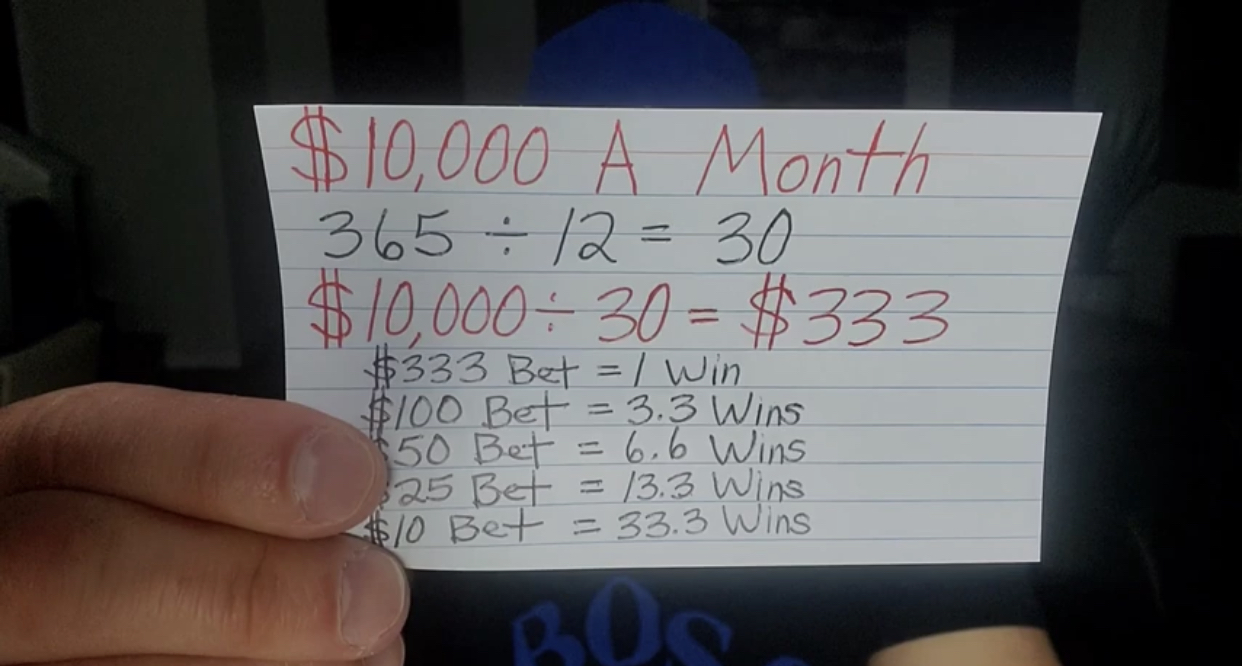 $10,000 A Month
365 ÷ 12 = 30
$10,000 ÷ 30 = $333
$333 Bet = 1 Win
$100 Bet = 3.3 Wins
$50 Bet = 6.6 Wins
$25 Bet = 13.3 Wins
$10 Bet = 33.3 Wins
BOS